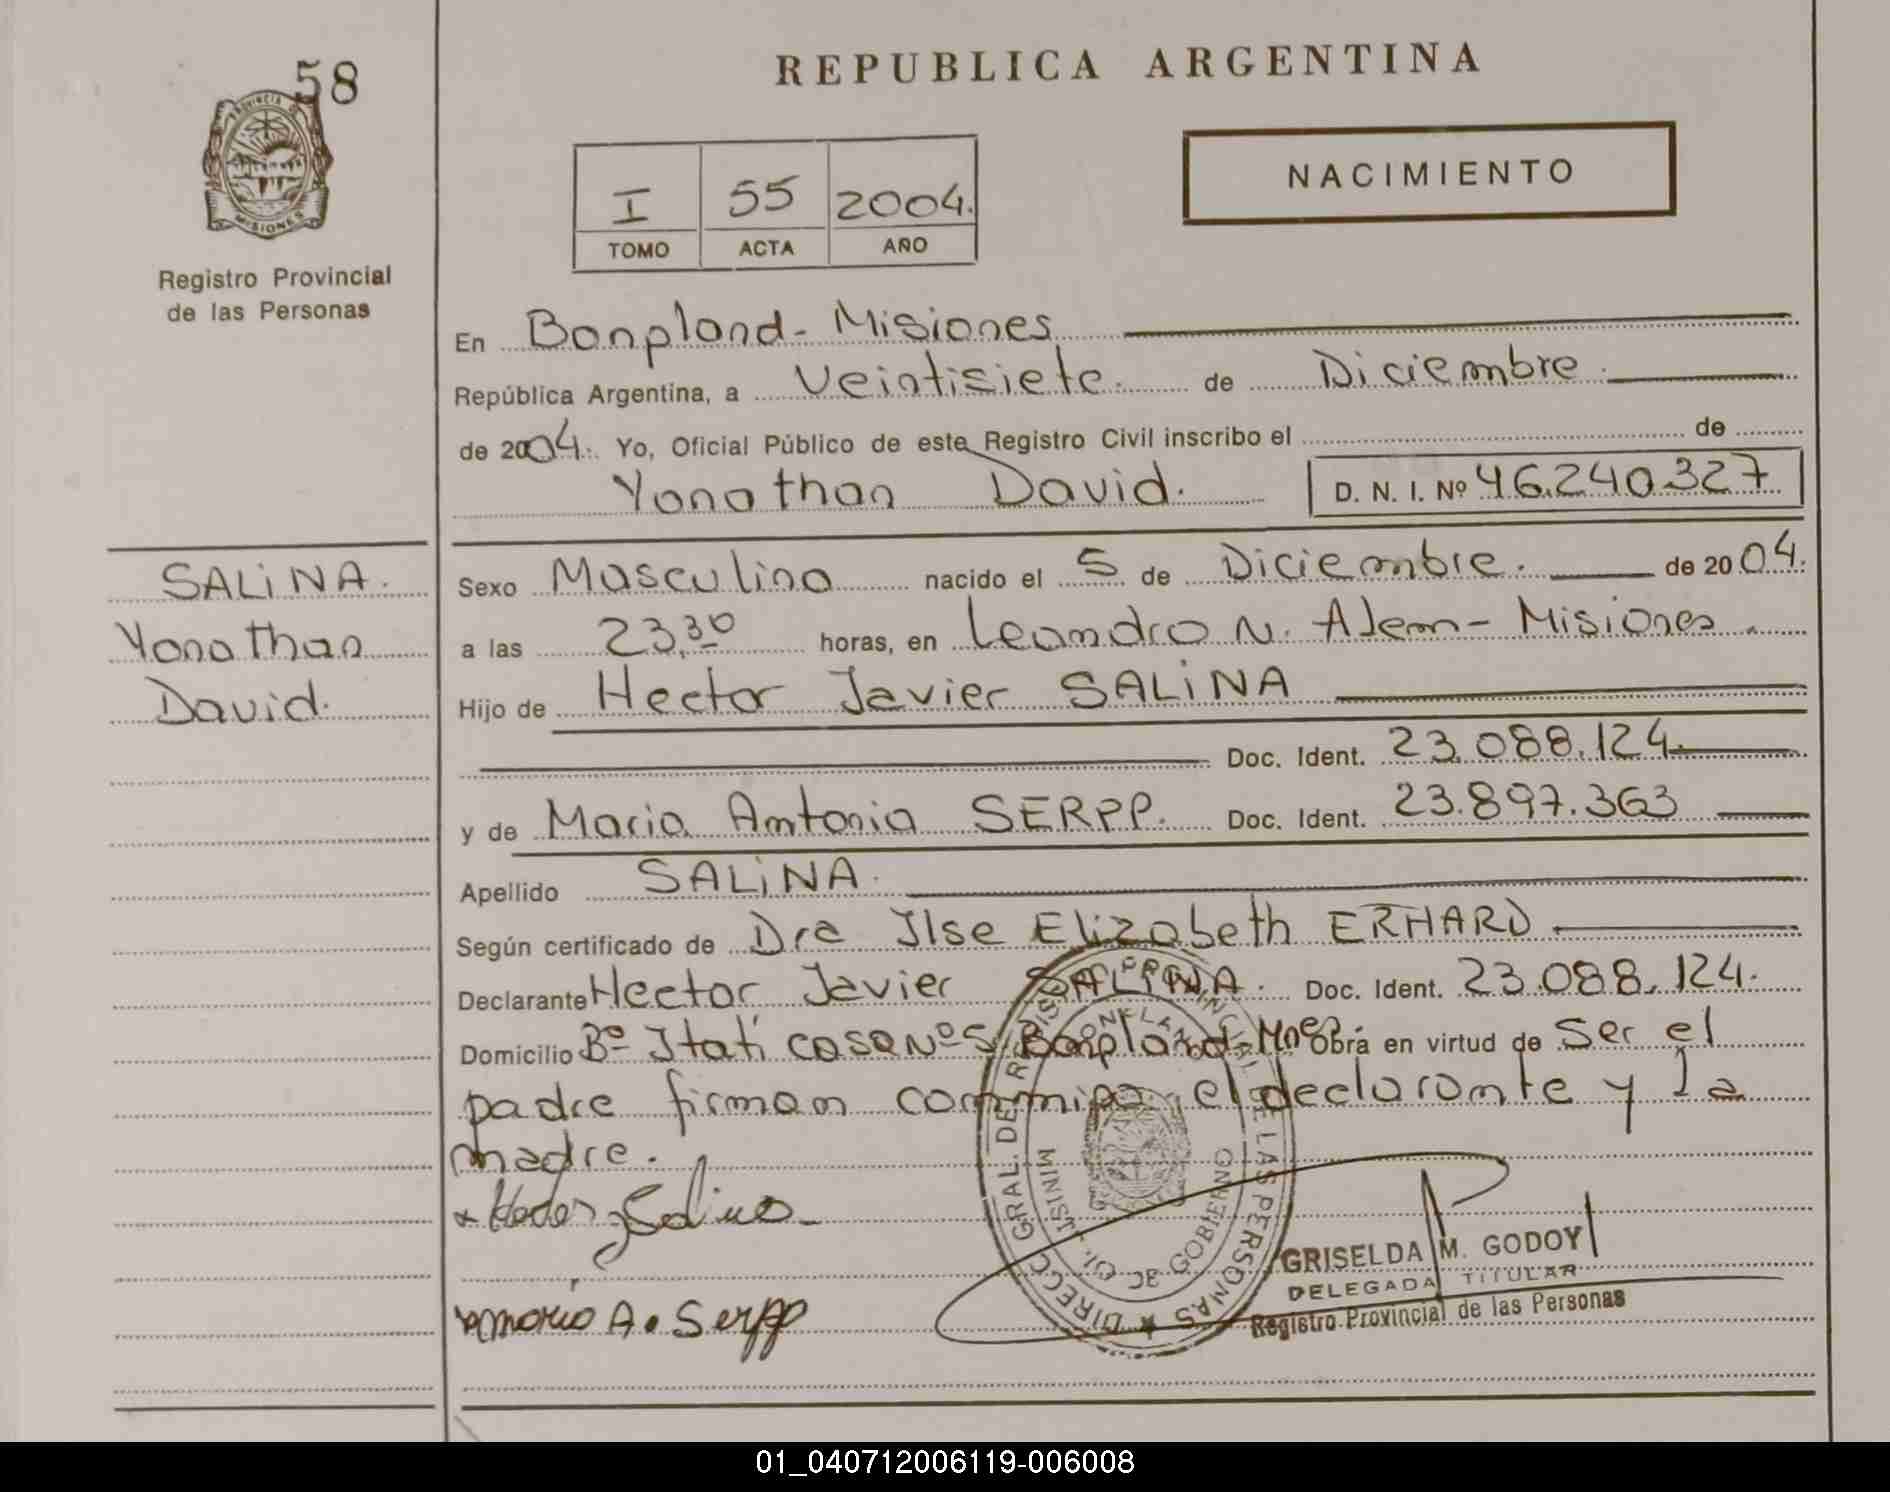 58
PROVINCIA DE
MISIONES
Registro Provincial
de las Personas
REPUBLICA ARGENTINA
I 55 2004.
TOMO ACTA AÑO
NACIMIENTO
En Bonpland - Misiones
República Argentina, a Veintisiete. de Diciembre.
de 2004. Yo, Oficial Público de este Registro Civil inscribo el de
Yonathan David. D. N. I. Nº 46.240.327
SALiNA.
Yonathan
David.
Sexo Masculino nacido el 5 de Diciembre. de 2004.
a las 23,30 horas, en Leandro N. Alem - Misiones.
Hijo de Hector Javier SALiNA
Doc. Ident. 23.088.124.
y de Maria Antonia SERPP. Doc. Ident. 23.897.363
Apellido SALiNA.
Según certificado de Dra Ilse Elizabeth ERHARD
Declarante Hector Javier SALINA. Doc. Ident. 23.088.124.
Domicilio Bº Itatí casa Nº 5 Bonpland - Mnes. Obra en virtud de Ser el
padre firman conmigo el declarante y la
madre.
Salina
Maria A. Serpp
DIRECC. GRAL. DEL REGISTRO PROVINCIAL DE LAS PERSONAS
DE GOBIERNO
GRISELDA M. GODOY
DELEGADA TITULAR
Registro Provincial de las Personas
01_040712006119-006008